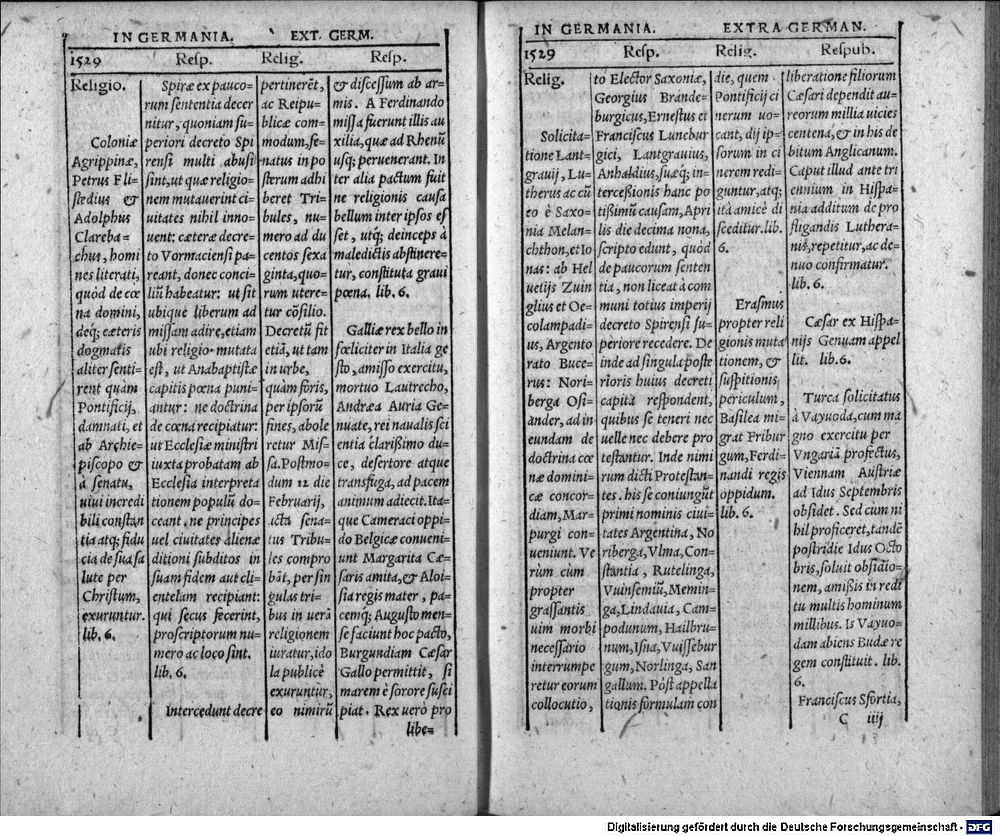 IN GERMANIA. EXT. GERM.
1529 Resp. Relig. Resp.
Religio.
Coloniæ
Agrippinæ,
Petrus Fli=
stedius &
Adolphus
Clareba=
chus, homi
nes literati,
quòd de cœ
na domini,
deq; cæteris
dogmatis
aliter senti=
rent quàm
Pontificij,
damnati, et
ab Archie=
piscopo &
à senatu,
uiui incredi
bili constan
tia atq; fidu
cia de sua sa
lute per
Christum,
exuruntur.
lib. 6.
Spiræ ex pauco=
rum sententia decer
nitur, quoniam su=
periori decreto Spi
rensi multi abusi
sint, ut quæ religio=
nem mutauerint ci=
uitates nihil inno=
uent: cæteræ decre=
to Vormaciensi pa=
reant, donec conci=
liũ habeatur: ut sit
ubique liberum ad
missam adire, etiam
ubi religio mutata
est, ut Anabaptistæ
capitis pœna puni=
antur: ne doctrina
de cœna recipiatur:
ut Ecclesiæ ministri
iuxta probatam ab
Ecclesia interpreta
tionem populũ do=
ceant. ne principes
uel ciuitates alienæ
ditioni subditos in
suam fidem aut cli=
entelam recipiant:
qui secus fecerint,
proscriptorum nu=
mero ac loco sint.
lib. 6.
Intercedunt decre
pertinerẽt,
ac Reipu=
blicæ com=
modum, se=
natus in po
sterum adhi
beret Tri=
bules, nu=
mero ad du
centos sexa
ginta, quo=
rum utere=
tur cõsilio.
Decretũ fit
etiã, ut tam
in urbe,
quàm foris,
per ipsorũ
fines, abole
retur Mis=
sa. Postmo=
dum 12 die
Februarij,
icta sena=
tus Tribu=
les compro
bãt, per sin
gulas tri=
bus in uerã
religionem
iuratur, ido
la publicè
exuruntur,
eo nimirũ
& discessum ab ar=
mis. A Ferdinando
missa fuerunt illis au
xilia, quæ ad Rhenũ
usq; peruenerant. In
ter alia pactum fuit
ne religionis causa
bellum inter ipsos es
set, utq; deinceps à
maledictis abstinere=
tur, constituta graui
pœna. lib. 6.
Galliæ rex bello in
fœliciter in Italia ge
sto, amisso exercitu,
mortuo Lautrecho,
Andræa Auria Ge=
nuate, rei naualis sci
entia clarissimo du=
ce, desertore atque
transfuga, ad pacem
animum adiecit. Ita=
que Cameraci oppi=
do Belgicæ conueni=
unt Margarita Cæ=
saris amita, & Aloi=
sia regis mater, pa=
cemq; Augusto men=
se faciunt hoc pacto,
Burgundiam Cæsar
Gallo permittit, si
marem è sorore susci
piat. Rex uerò pro
libe=
IN GERMANIA. EXTRA GERMAN.
1529 Resp. Relig. Respub.
Relig.
Solicita=
tione Lant=
grauij, Lu=
therus ac cũ
eo è Saxo=
nia Melan=
chthon, et Io
nas: ab Hel
uetijs Zuin
glius et Oe=
colampadi=
us, Argento
rato Buce=
rus: Nori=
berga Osi=
ander, ad in
eundam de
doctrina cœ
næ domini=
cæ concor=
diam, Mar=
purgi con=
ueniunt. Ve
rùm cùm
propter
grassantis
uim morbi
necessario
interrumpe
retur eorum
collocutio,
to Elector Saxoniæ,
Georgius Brande=
burgicus, Ernestus et
Franciscus Lunebur
gici, Lantgrauius,
Anhaldius, suæq; in=
tercessionis hanc po
tißimũ causam, Apri
lis die decima nona,
scripto edunt, quòd
de paucorum senten
tia, non liceat à com
muni totius imperij
decreto Spirensi su=
periore recedere. De
inde ad singula poste
rioris huius decreti
capita respondent,
quibus se teneri nec
uelle nec debere pro
testantur. Inde nimi
rum dicti Protestan=
tes. his se coniungũt
primi nominis ciui=
tates Argentina, No
riberga, Vlma, Con=
stantia, Rutelinga,
Vuinsemiũ, Memin=
ga, Lindauia, Cam=
podunum, Hailbru=
num, Isna, Vuissebur
gum, Norlinga, San
gallum. Pòst appella
tionis formulam con
die, quem
Pontificij ci
nerum uo=
cant, dij ip=
sorum in ci
nerem redi=
guntur, atq;
ità amicè di
sceditur. lib.
6.
Erasmus
propter reli
gionis muta
tionem, &
suspitionis
periculum,
Basilea mi=
grat Fribur
gum, Ferdi=
nandi regis
oppidum.
lib. 6.
liberatione filiorum
Cæsari dependit au=
reorum millia uicies
centena, & in his de
bitum Anglicanum.
Caput illud ante tri
ennium in Hispa=
nia additum de pro
fligandis Luthera=
nis, repetitur, ac de=
nuo confirmatur.
lib. 6.
Cæsar ex Hispa=
nijs Genuam appel
lit. lib. 6.
Turca solicitatus
à Vayuoda, cum ma
gno exercitu per
Vngariã profectus,
Viennam Austriæ
ad Idus Septembris
obsidet. Sed cum ni
hil proficeret, tandẽ
postridie Idus Octo
bris, soluit obsidio=
nem, amißis in redi
tu multis hominum
millibus. Is Vayuo=
dam abiens Budæ re
gem constituit. lib.
6.
Franciscus Sfortia,
C iiij
Digitalisierung gefördert durch die Deutsche Forschungsgemeinschaft - DFG